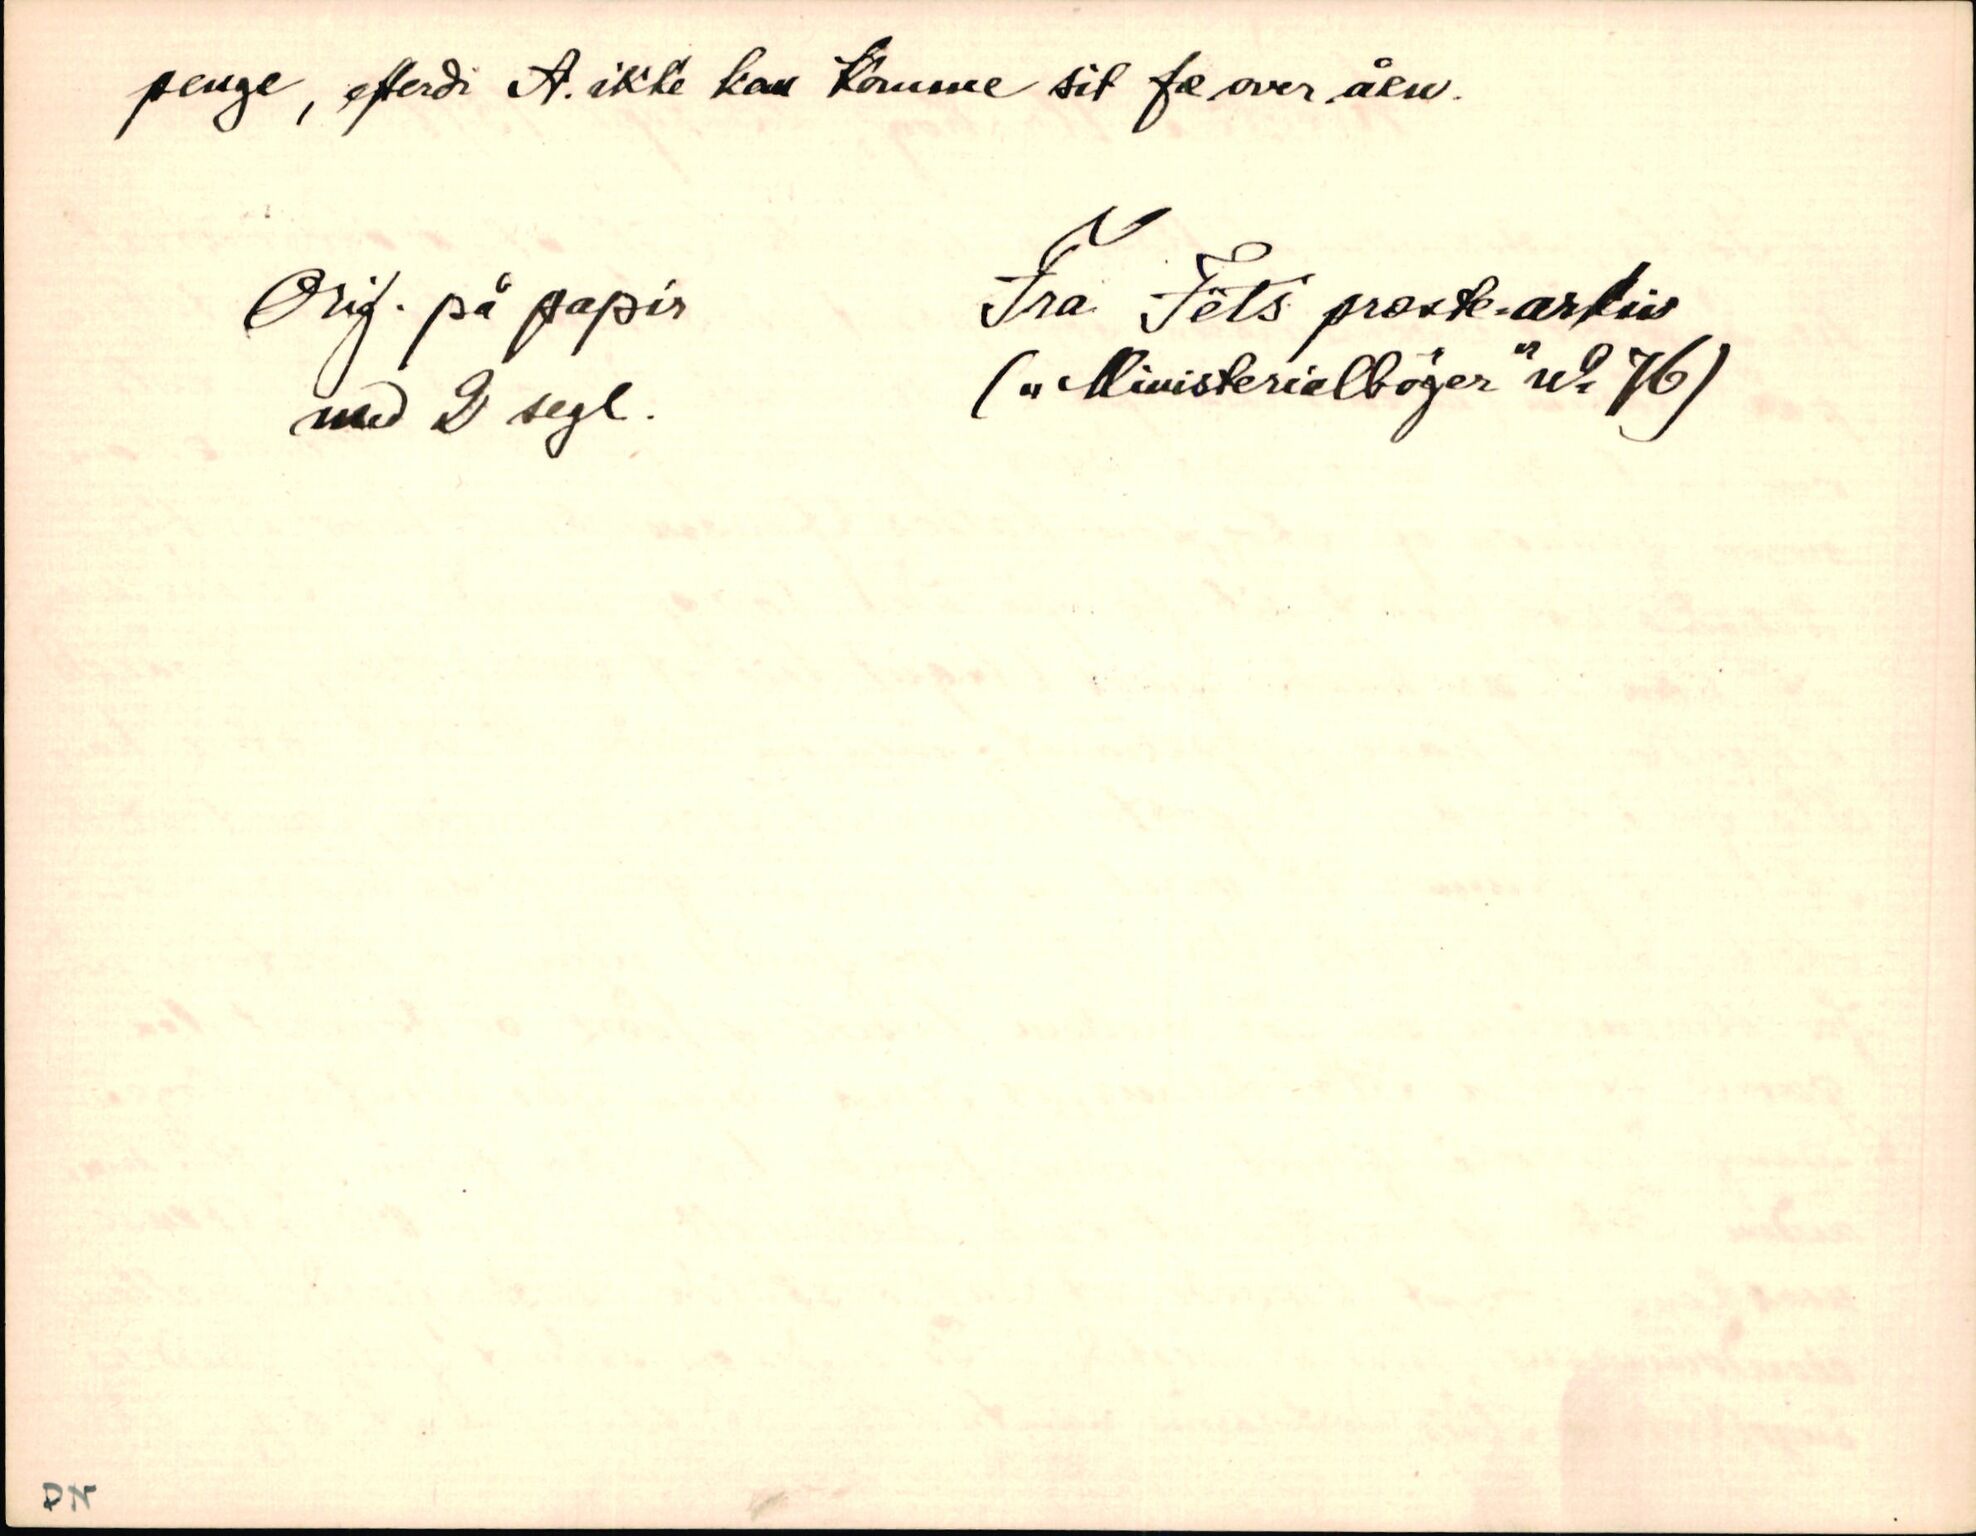 penge, efterdi A. ikke kan komme sit fæ over åen.
Orig. på papir
med 2 segl.
Fra Fets præste-arkiv
(„Ministerialbøger" nº 76)
DN